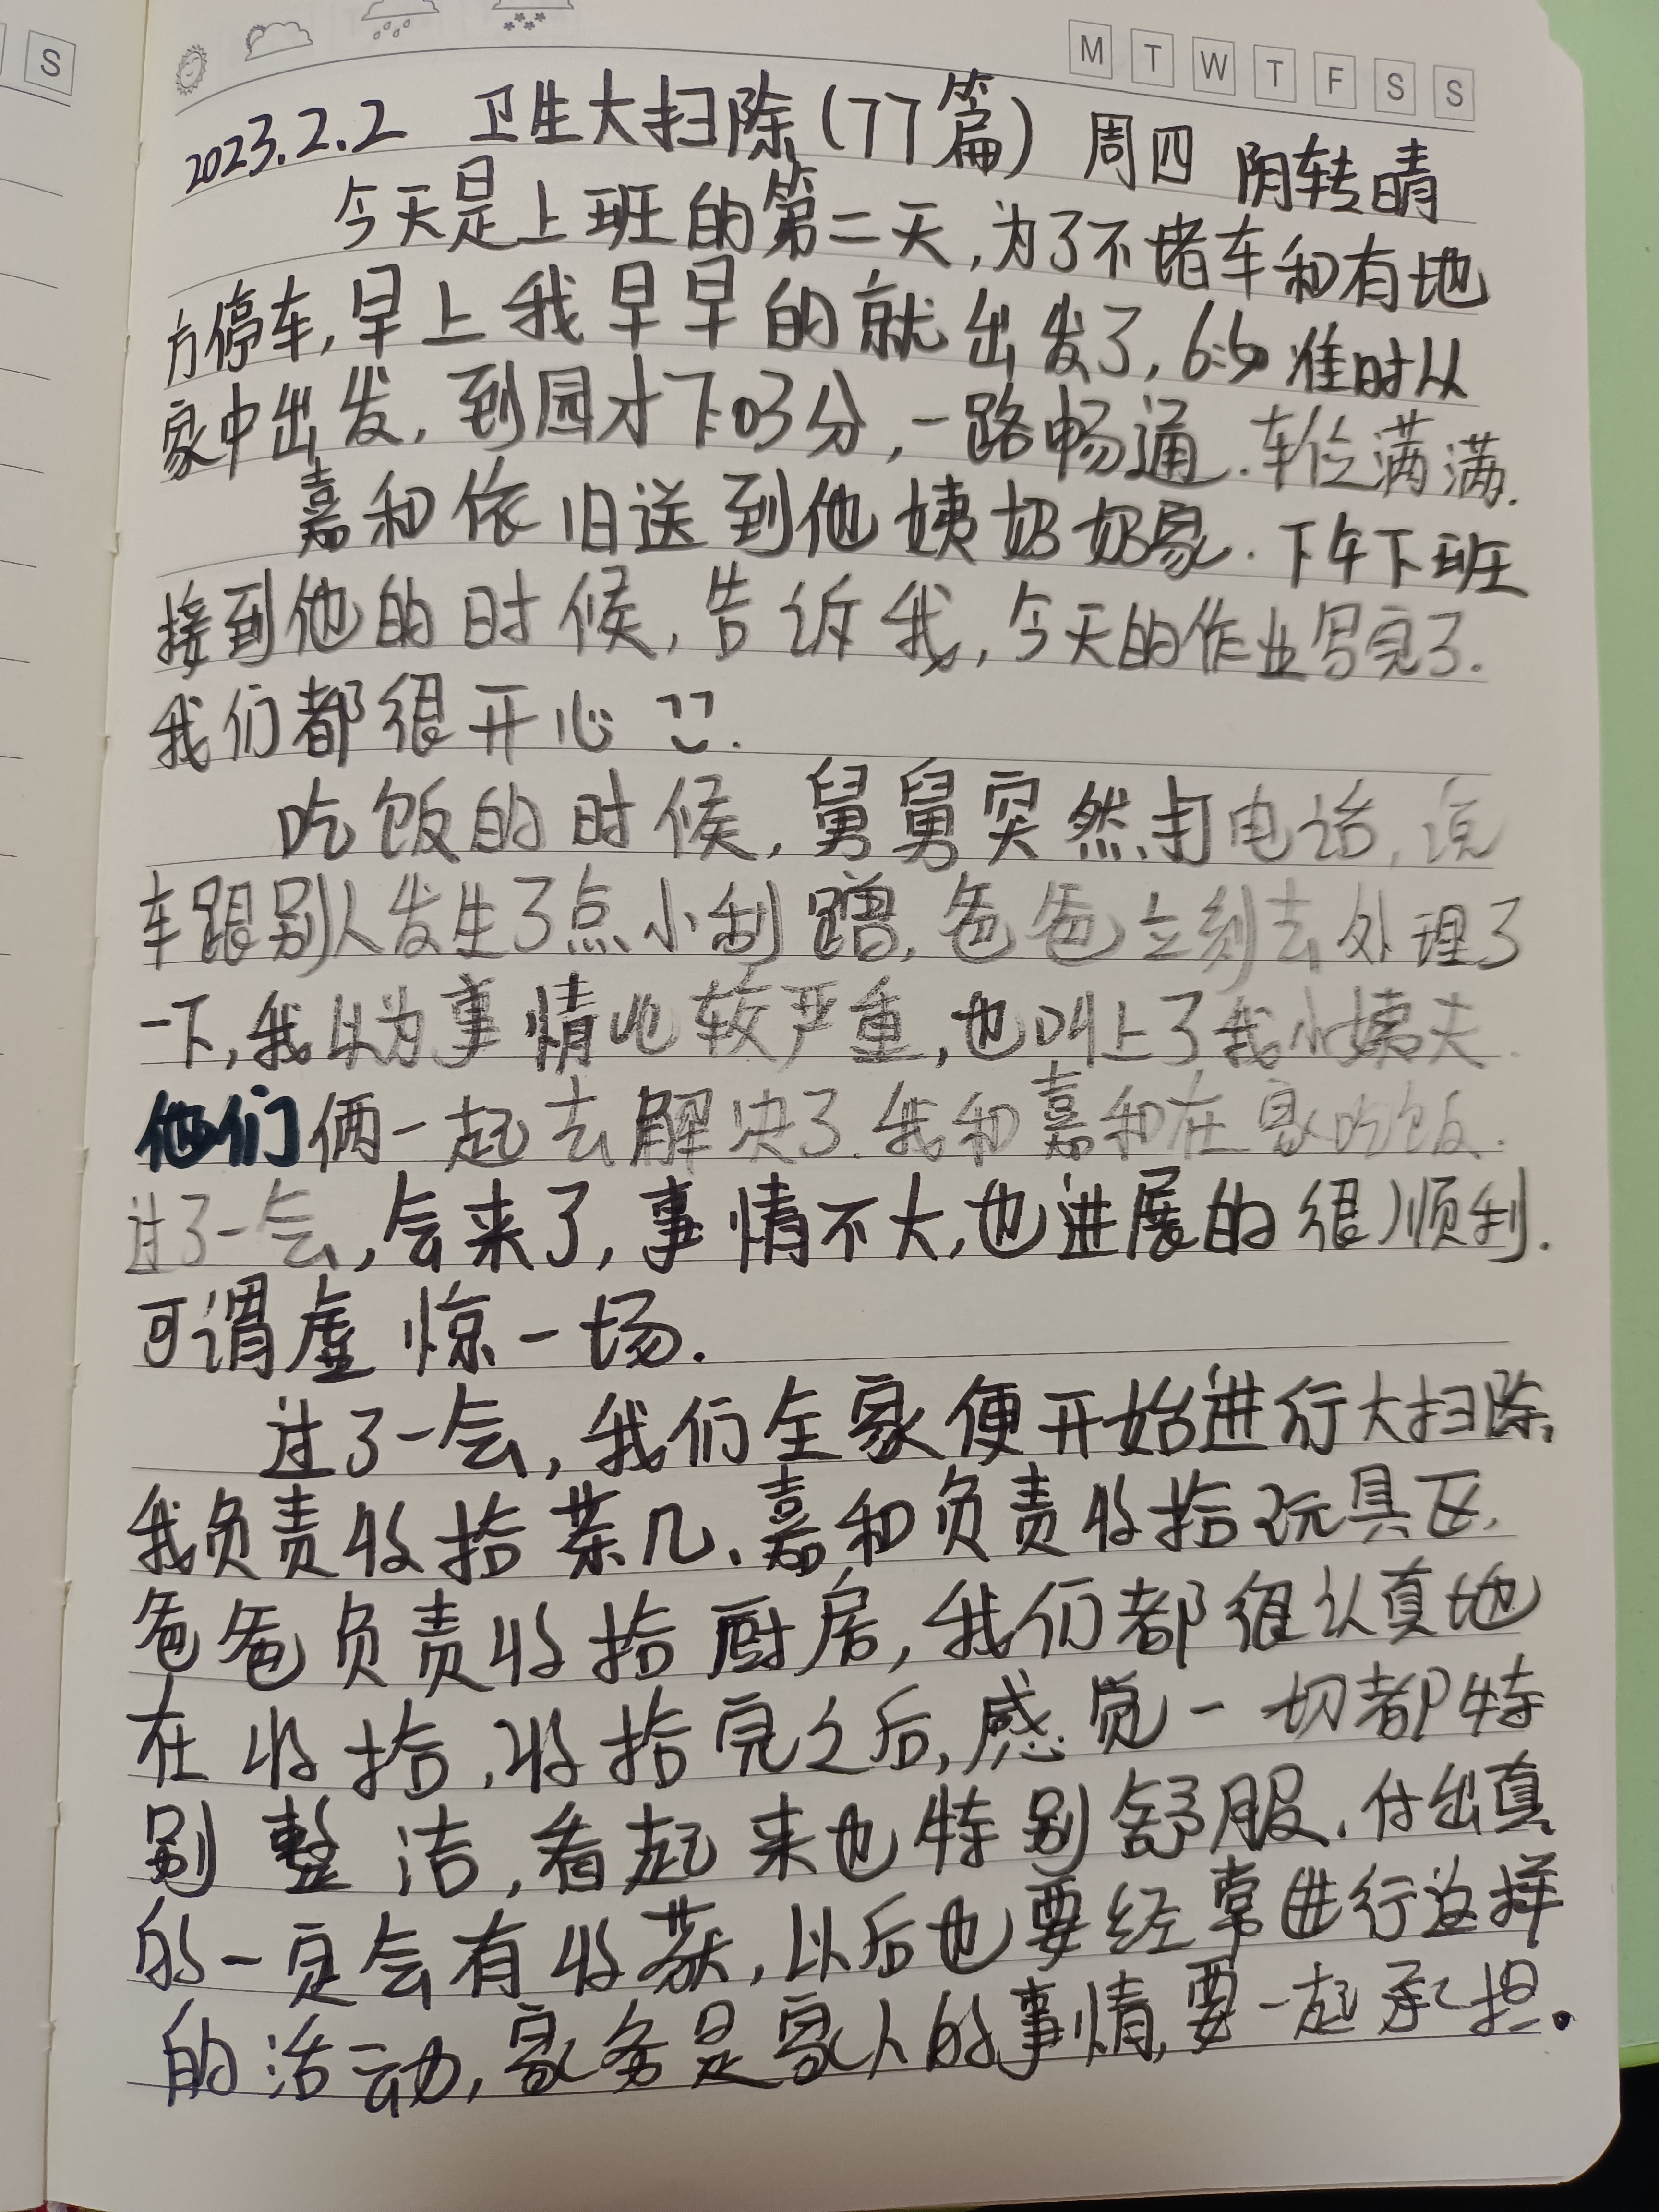 S
M T W T F S S
2023.2.2 卫生大扫除(77篇) 周四 阴转晴
今天是上班的第二天,为了不堵车和有地
方停车,早上我早早的就出发了,6:50准时从
家中出发,到园才7:03分,一路畅通.车位满满.
嘉和依旧送到他姨奶奶家.下午下班
接到他的时候,告诉我,今天的作业写完了.
我们都很开心
吃饭的时候,舅舅突然打电话,说
车跟别人发生了点小刮蹭,爸爸立刻去处理了
一下,我以为事情比较严重,也叫上了我小姨夫.
他们俩一起去解决了.我和嘉和在家吃饭.
过了一会,会来了,事情不大,也进展的很顺利.
可谓虚惊一场.
过了一会,我们全家便开始进行大扫除,
我负责收拾茶几、嘉和负责收拾玩具区,
爸爸负责收拾厨房,我们都很认真地
在收拾,收拾完之后,感觉一切都特
别整洁,看起来也特别舒服.付出真
的一定会有收获,以后也要经常进行这样
的活动,家务是家人的事情,要一起承担。